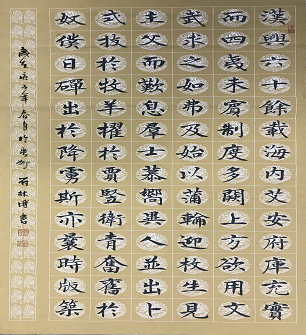 漢興六十餘載海内艾安府庫充實
而四夷未賓制度多闕上方欲用文
武求之如弗及始以蒲輪迎枚生見
主父而歎息羣士慕嚮異人並出卜
式拔於牧羊擢於賈豎衛青奮舊於
奴僕日磾出於降虜斯亦曩時版築
年春月於 石林 書